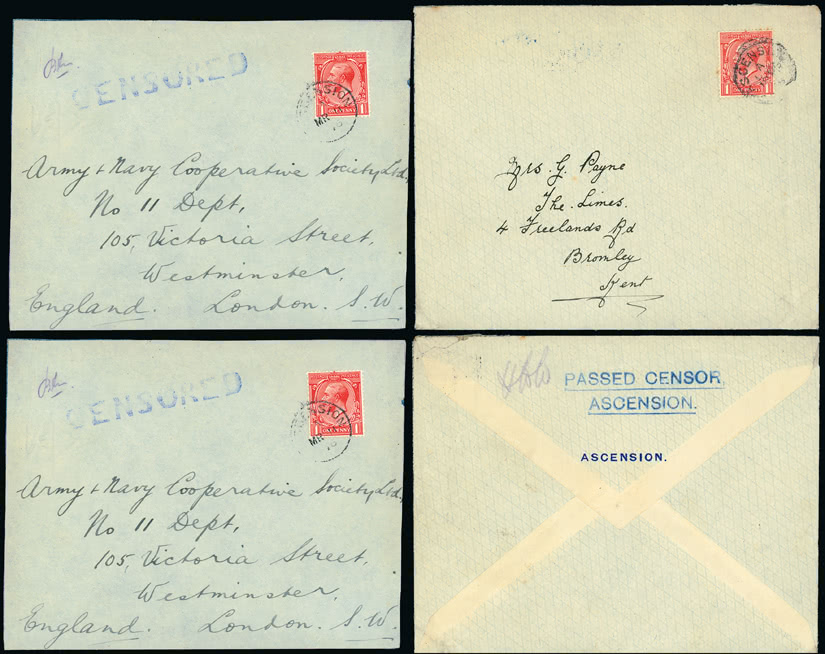 CENSORED
ASCENSION
MR
1 ONE PENNY 1
Army & Navy Cooperative Society, Ltd.,
No 11 Dept,
105, Victoria Street,
Westminster,
England. London. S.W.
ASCENSI
A
1 1
Mrs. G. Payne
The Limes.
4 Freelands Rd
Bromley
Kent
CENSORED
ASCENSION
MR
1 ONE PENNY 1
Army & Navy Cooperative Society, Ltd.,
No 11 Dept,
105, Victoria Street,
Westminster,
England. London. S.W.
PASSED CENSOR,
ASCENSION.
ASCENSION.